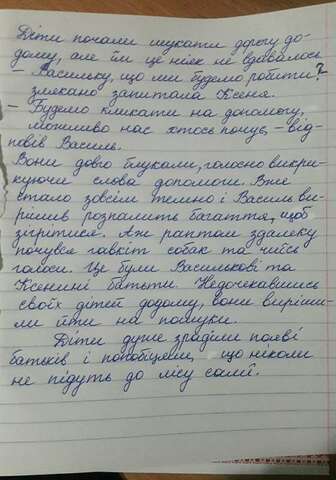 Діти почали шукати дорогу до-
дому, але їм це ніяк не вдавалося
– Васильку, що ми будемо робити?
злякано запитала Ксеня.
– Будемо кликати на допомогу,
можливо нас хтось почує, – від-
повів Василь.
Вони довго блукали, голосно викри-
куючи слова допомоги. Вже
стало зовсім темно і Василь ви-
рішив розпалить багаття, щоб
зігрітися. Аж раптом здалеку
почувся гавкіт собак та чиїсь
голоси. Це були Василькові та
Ксенині батьки. Недочекавшись
своїх дітей додому, вони виріши-
ли йти на пошуки.
Діти дуже зраділи появі
батьків і пообіцяли, що ніколи
не підуть до лісу самі.